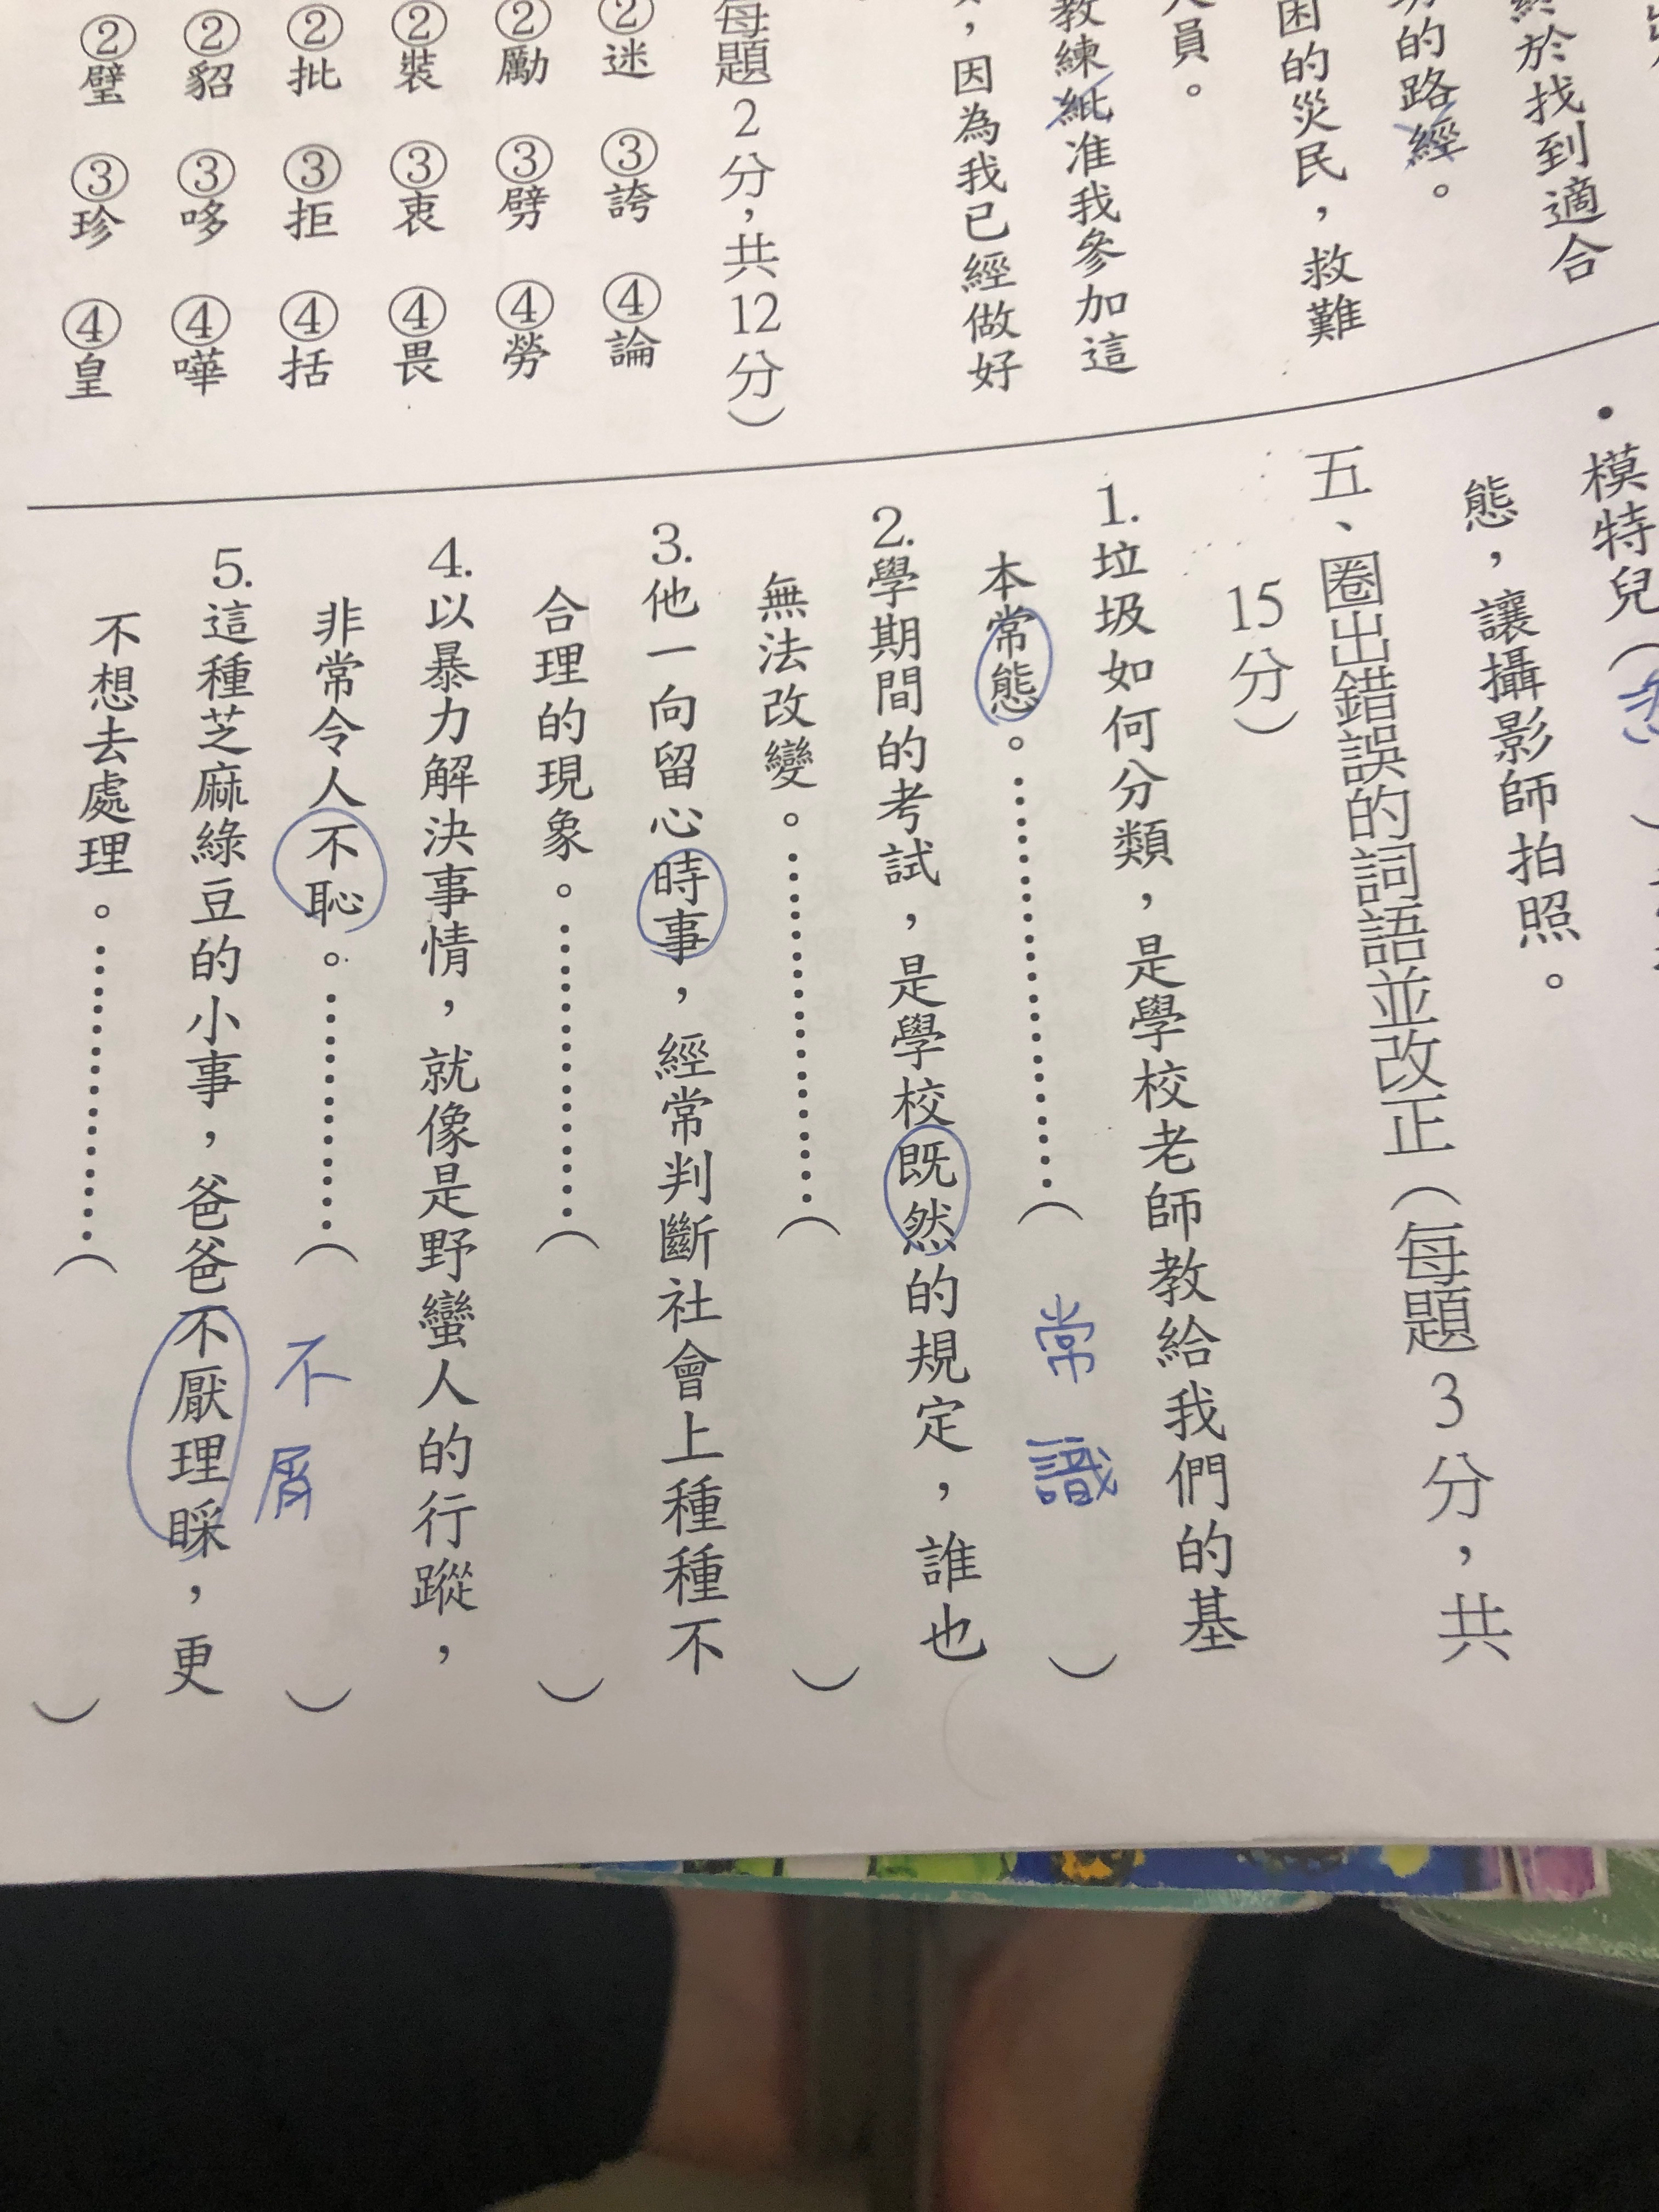 終於找到適合
的路經。
困的災民，救難
人員。
教練紕准我參加這
，因為我已經做好
每題2分，共12分）
②迷 ③誇 ④論
②勵 ③劈 ④勞
②裝 ③衷 ④畏
②批 ③拒 ④括
②貂 ③哆 ④嘩
②璧 ③珍 ④皇
・模特兒（
態，讓攝影師拍照。
五、圈出錯誤的詞語並改正（每題3分，共
15分）
1.垃圾如何分類，是學校老師教給我們的基
本常態。…………………（常識）
2.學期間的考試，是學校既然的規定，誰也
無法改變。…………………（ ）
3.他一向留心時事，經常判斷社會上種種不
合理的現象。………………（ ）
4.以暴力解決事情，就像是野蠻人的行蹤，
非常令人不恥。……………（不屑）
5.這種芝麻綠豆的小事，爸爸不厭理睬，更
不想去處理。………………（ ）